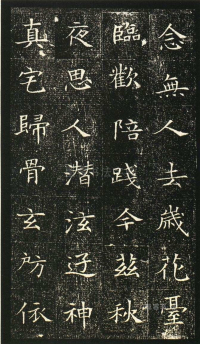 念無人去歲花臺
臨歡陪踐今茲秋
夜思人潜泫迁神
真宅歸骨玄房依